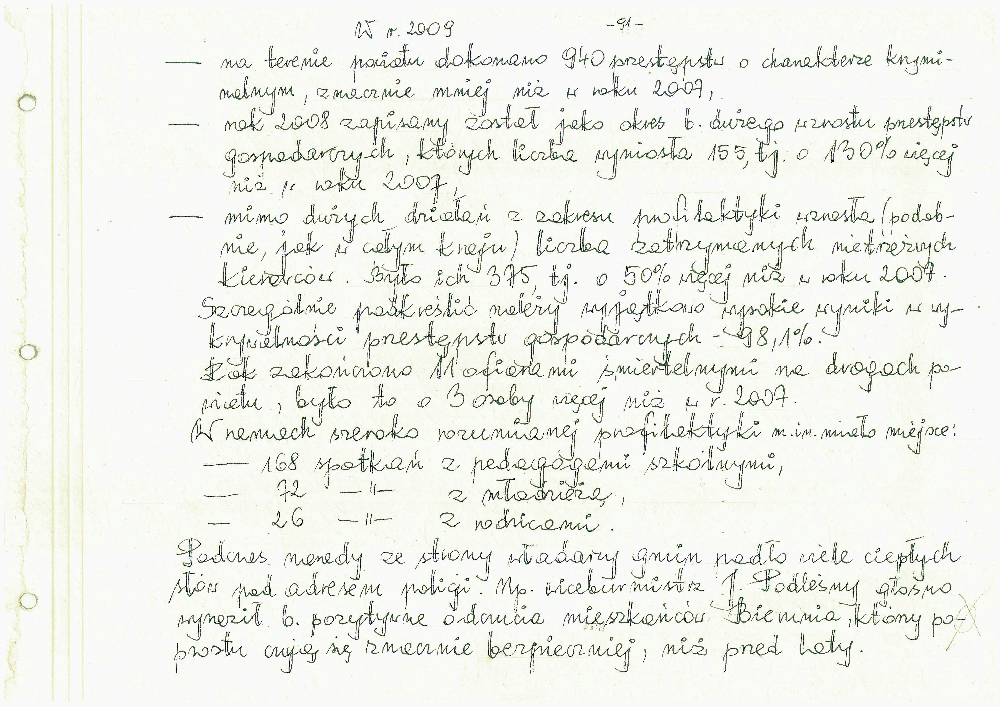 W r. 2009 -91-
— na terenie powiatu dokonano 940 przestępstw o charakterze krymi-
nalnym, znacznie mniej niż w roku 2007,
— rok 2008 zapisany został jako okres b. dużego wzrostu przestępstw
gospodarczych, których liczba wyniosła 155, tj. o 130% więcej
niż w roku 2007,
— mimo dużych działań z zakresu profilaktyki wzrosła (podob-
nie, jak w całym kraju) liczba zatrzymanych nietrzeźwych
kierowców. Było ich 375, tj. o 50% więcej niż w roku 2007.
Szczególnie podkreślić należy wyjątkowo wysokie wyniki w wy-
krywalności przestępstw gospodarczych - 98,1%.
Rok zakończono 11 ofiarami śmiertelnymi na drogach po-
wiatu, było to o 3 osoby więcej niż w r. 2007.
W ramach szeroko rozumianej profilaktyki m.in. miało miejsce:
— 168 spotkań z pedagogami szkolnymi,
— 72 —"— z młodzieżą,
— 26 —"— z rodzicami.
Podczas narady ze strony władarzy gmin padło wiele ciepłych
słów pod adresem policji. Np. wiceburmistrz J. Podleśny głośno
wyraził b. pozytywne odczucia mieszkańców Bierunia, którzy po-
prostu czują się znacznie bezpieczniej, niż przed laty.